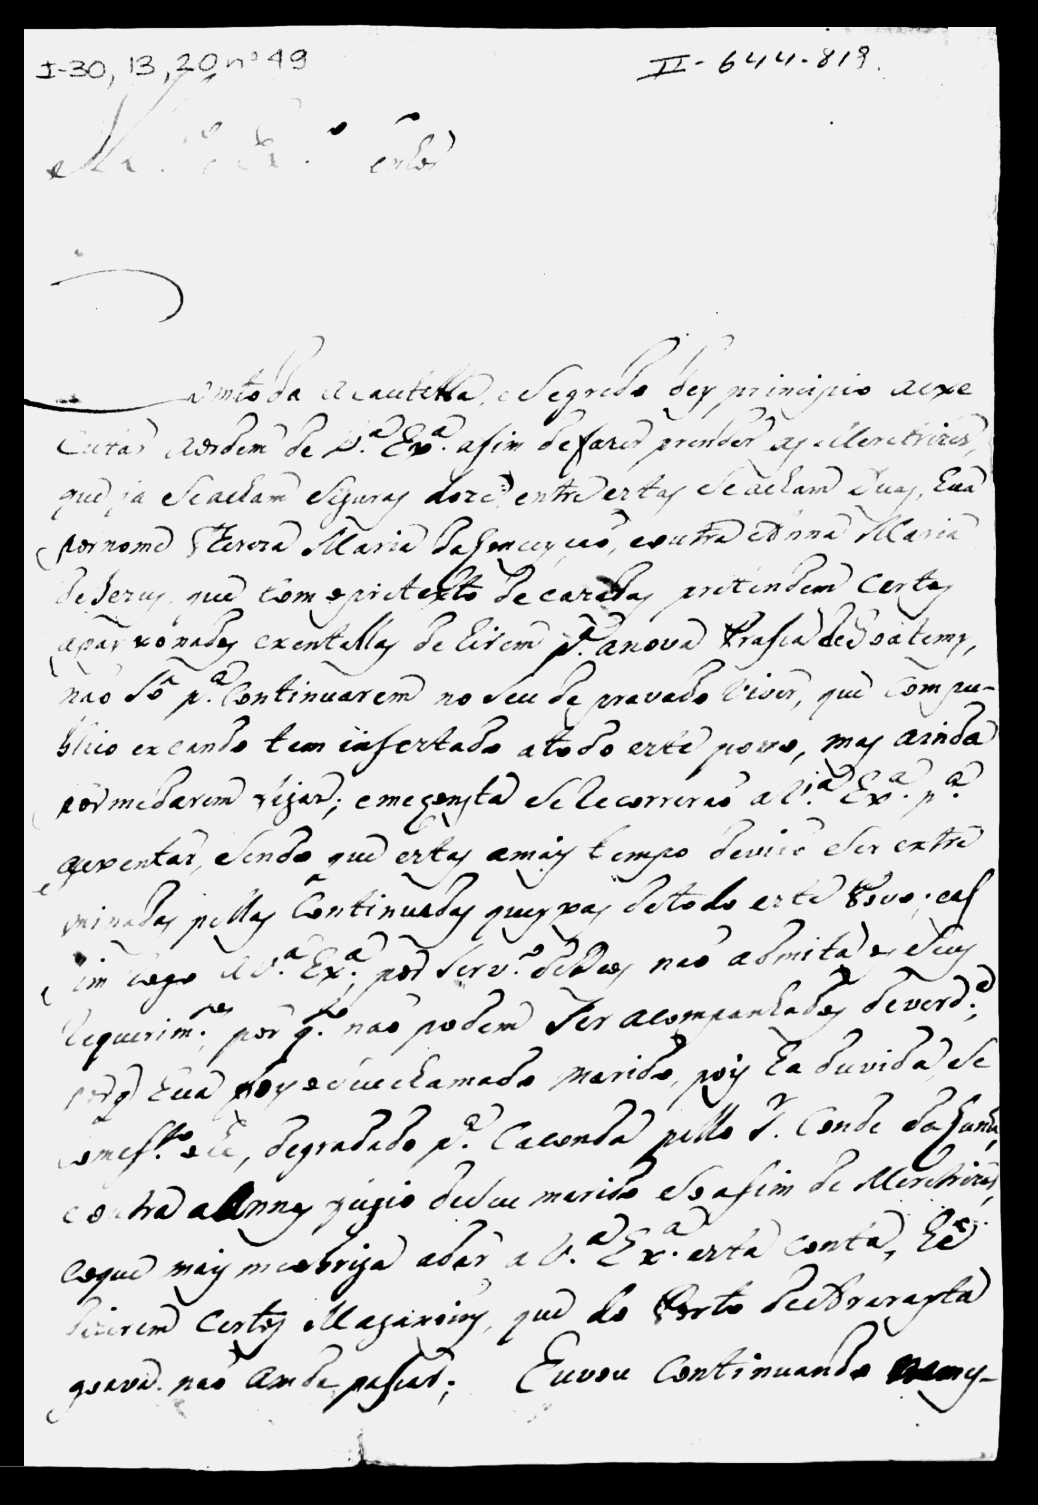 I-30, 13, 20 nº 49
II - 644-819.
omtoda a cautella, e Segredo dey principio aexe
Cutar aordem de V.ª Ex.ª afim defazer prender as Meretrizes,
que ja Seacham Seguras doze; entre estas Seacham duas, hua
por nome Thereza Maria daConceyçaõ, eoutra Anna Maria
deJezus, que com opretexto de cazadas pretendem Certos
apayxonados de hirem p.ª anova
naõ Só p.ª Continuarem no Seu depravado Viver, que Com pu-
blico escando tem infestado atodo este povo, mas ainda
por medarem figas; emeConsta Se Recorreraõ aV.ª Ex.ª p.ª
Sendo que estas amais tempo devião Ser extre
minadas pellas Continuadas queyxas detodo este Povo; eaS
im Rogo aV.ª Ex.ª, por Serv.º deDeos naõ admita os Seus
Requerim.tos, por q.to naõ podem Ser acompanhados deverd.e,
porq hua foy oSeuchamado marido, poys ha duvida, Se
comeff.to ohé, degradado p.ª Caconda pello S.r Conde daCunha,
eoutra aAnna fugio deSeu marido Só afim de Meretrizar,
eoque mais meobriga adar a V.ª Ex.ª esta conta, hé
dizerem Certos Magaroins, que do Porto deArarayta
goava naõ ande pasar; Euvou Continuando namy-